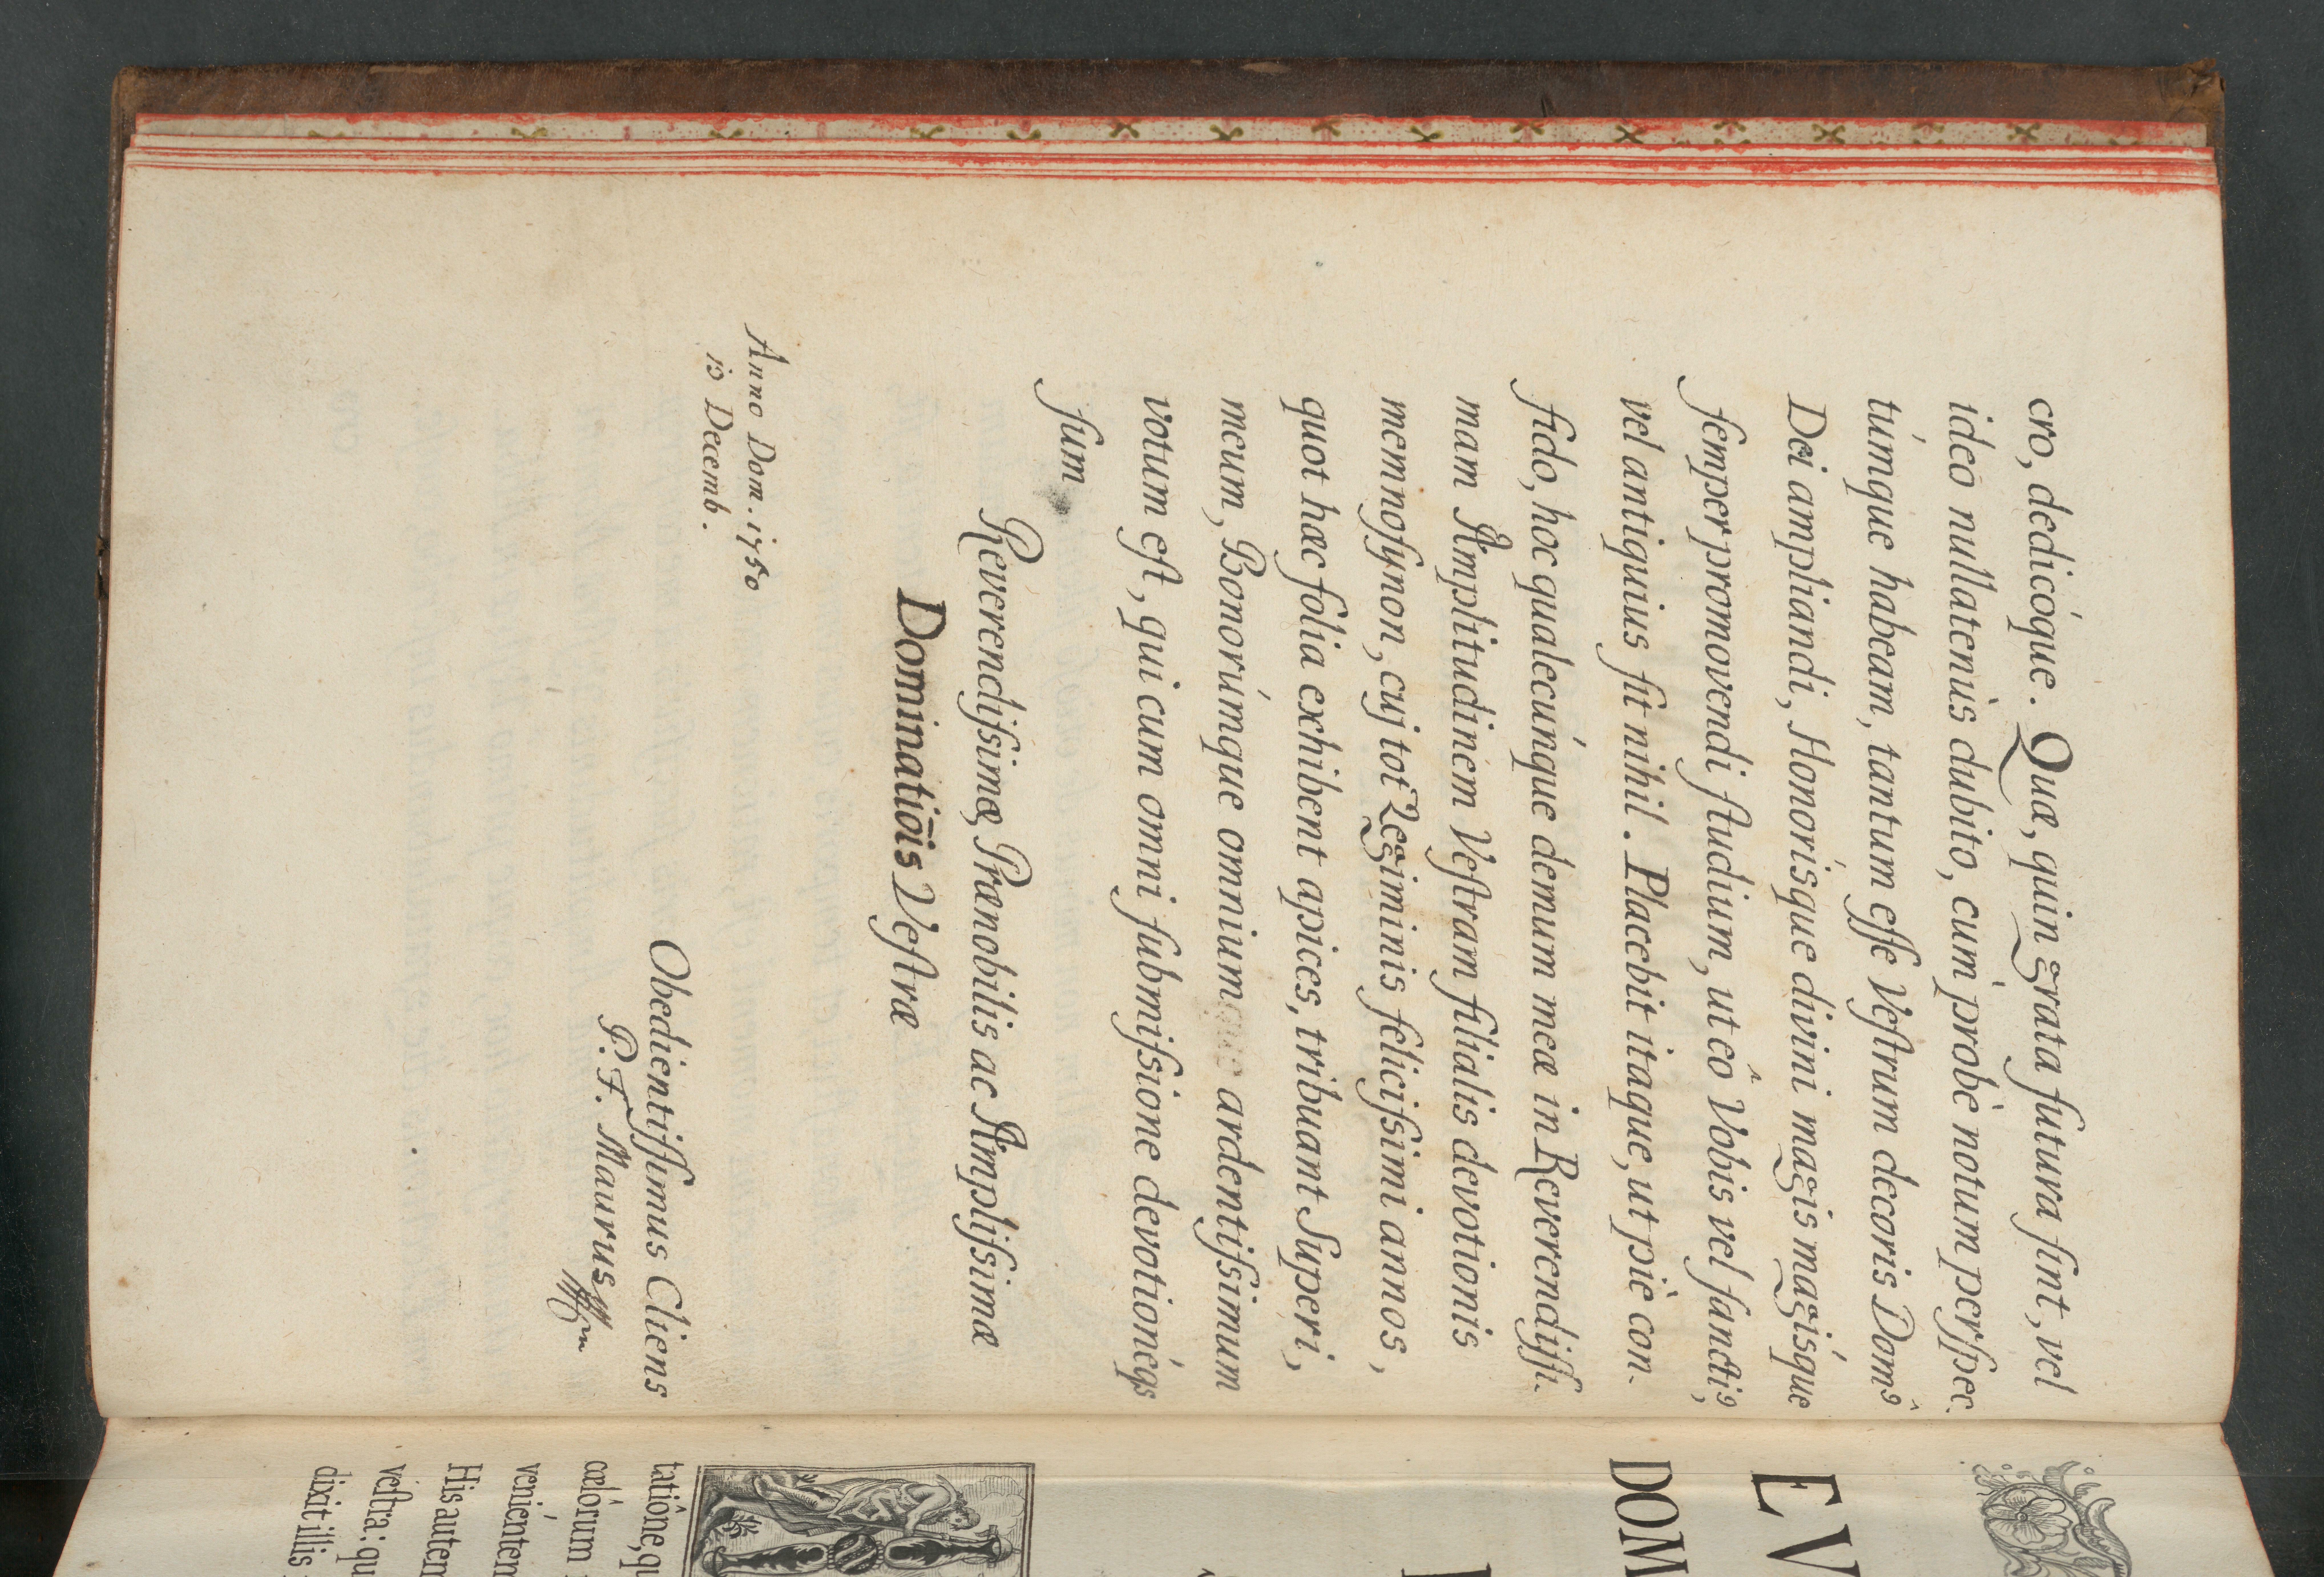 cro, dedicóque. Quæ, quin grata futura sint, vel
ideo nullatenùs dubito, cùm probè notum perspec-
túmque habeam, tantum esse Vestrum decoris Domûs
Dei ampliandi, Honorísque divini magis magísque
semper promovendi studium, ut eô Vobis vel sanctiùs,
vel antiquius sit nihil. Placebit itaque, ut piè con-
fido, hoc qualecúnque demum meæ in Reverendissi-
mam Amplitudinem Vestram filialis devotionis
memnosynon, cuj tot Regiminis felicissimi annos,
quot hæc folia exhibent apices, tribuant Superi,
meum, Bonorúmque omnium ardentissimum
votum est, qui cum omni submissione devotionéqs
sum
Reverendissimæ, Prænobilis ac Amplissimæ
Dominatiōis Vestræ
Anno Dom. 1750
10 Decemb.
Obedientissimus Cliens
P. F. Maurus
EV
DOM
tatiône, qu
cælórum
veniénten
His autem
vestra: qu
dixit illis